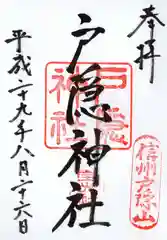 奉拝
信州戸隠山
戸隠神社
戸隠神社
平成二十九年八月二十六日